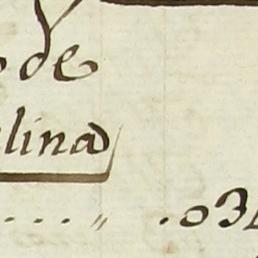 de
lina
.034